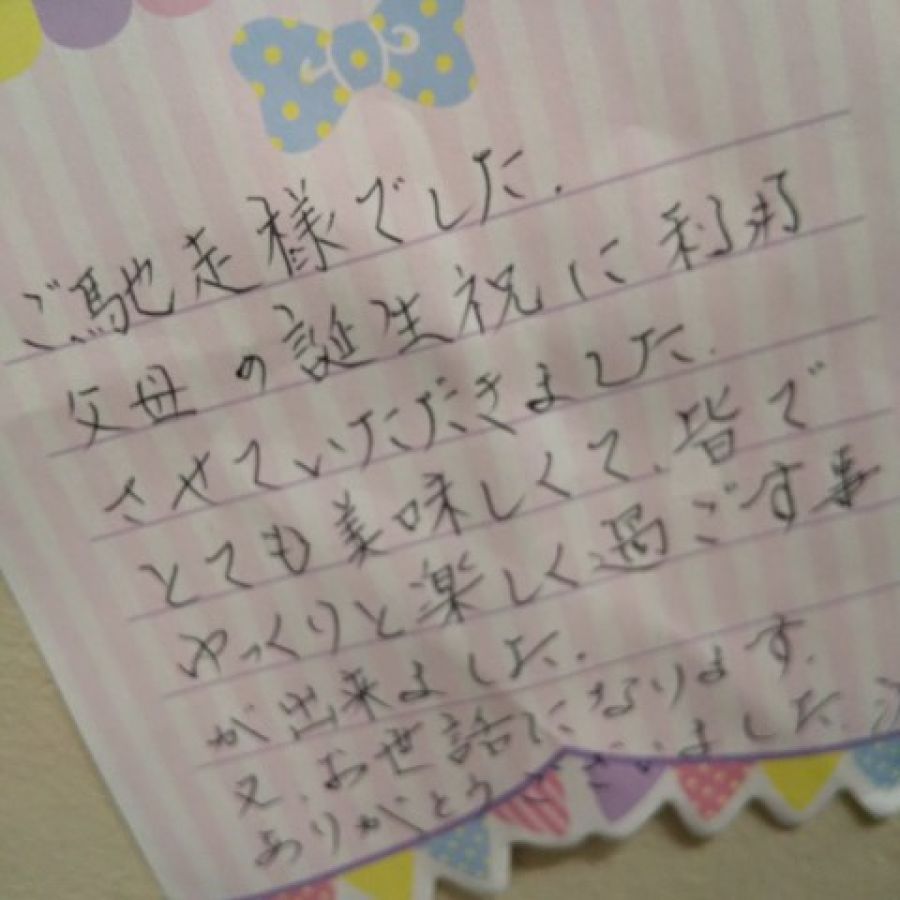 ご馳走様でした.
父母の誕生祝に利用
させていただきました.
とても美味しくて.皆で
ゆっくりと楽しく過ごす事
が出来ました.
又.お世話になります.
ありがとうございました.